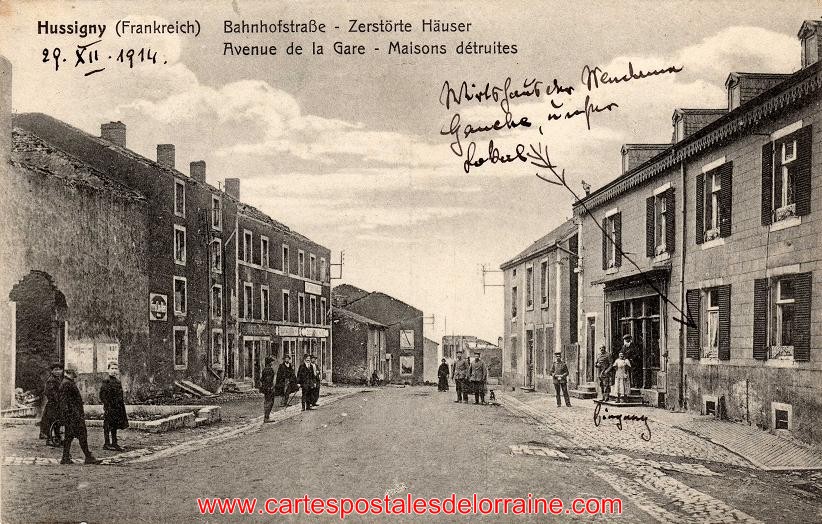 Hussigny (Frankreich) Bahnhofstraße - Zerstörte Häuser
29. XII. 1914. Avenue de la Gare - Maisons détruites
Wirtshaus der
unser
Lokal
Eingang
www.cartespostalesdelorraine.com